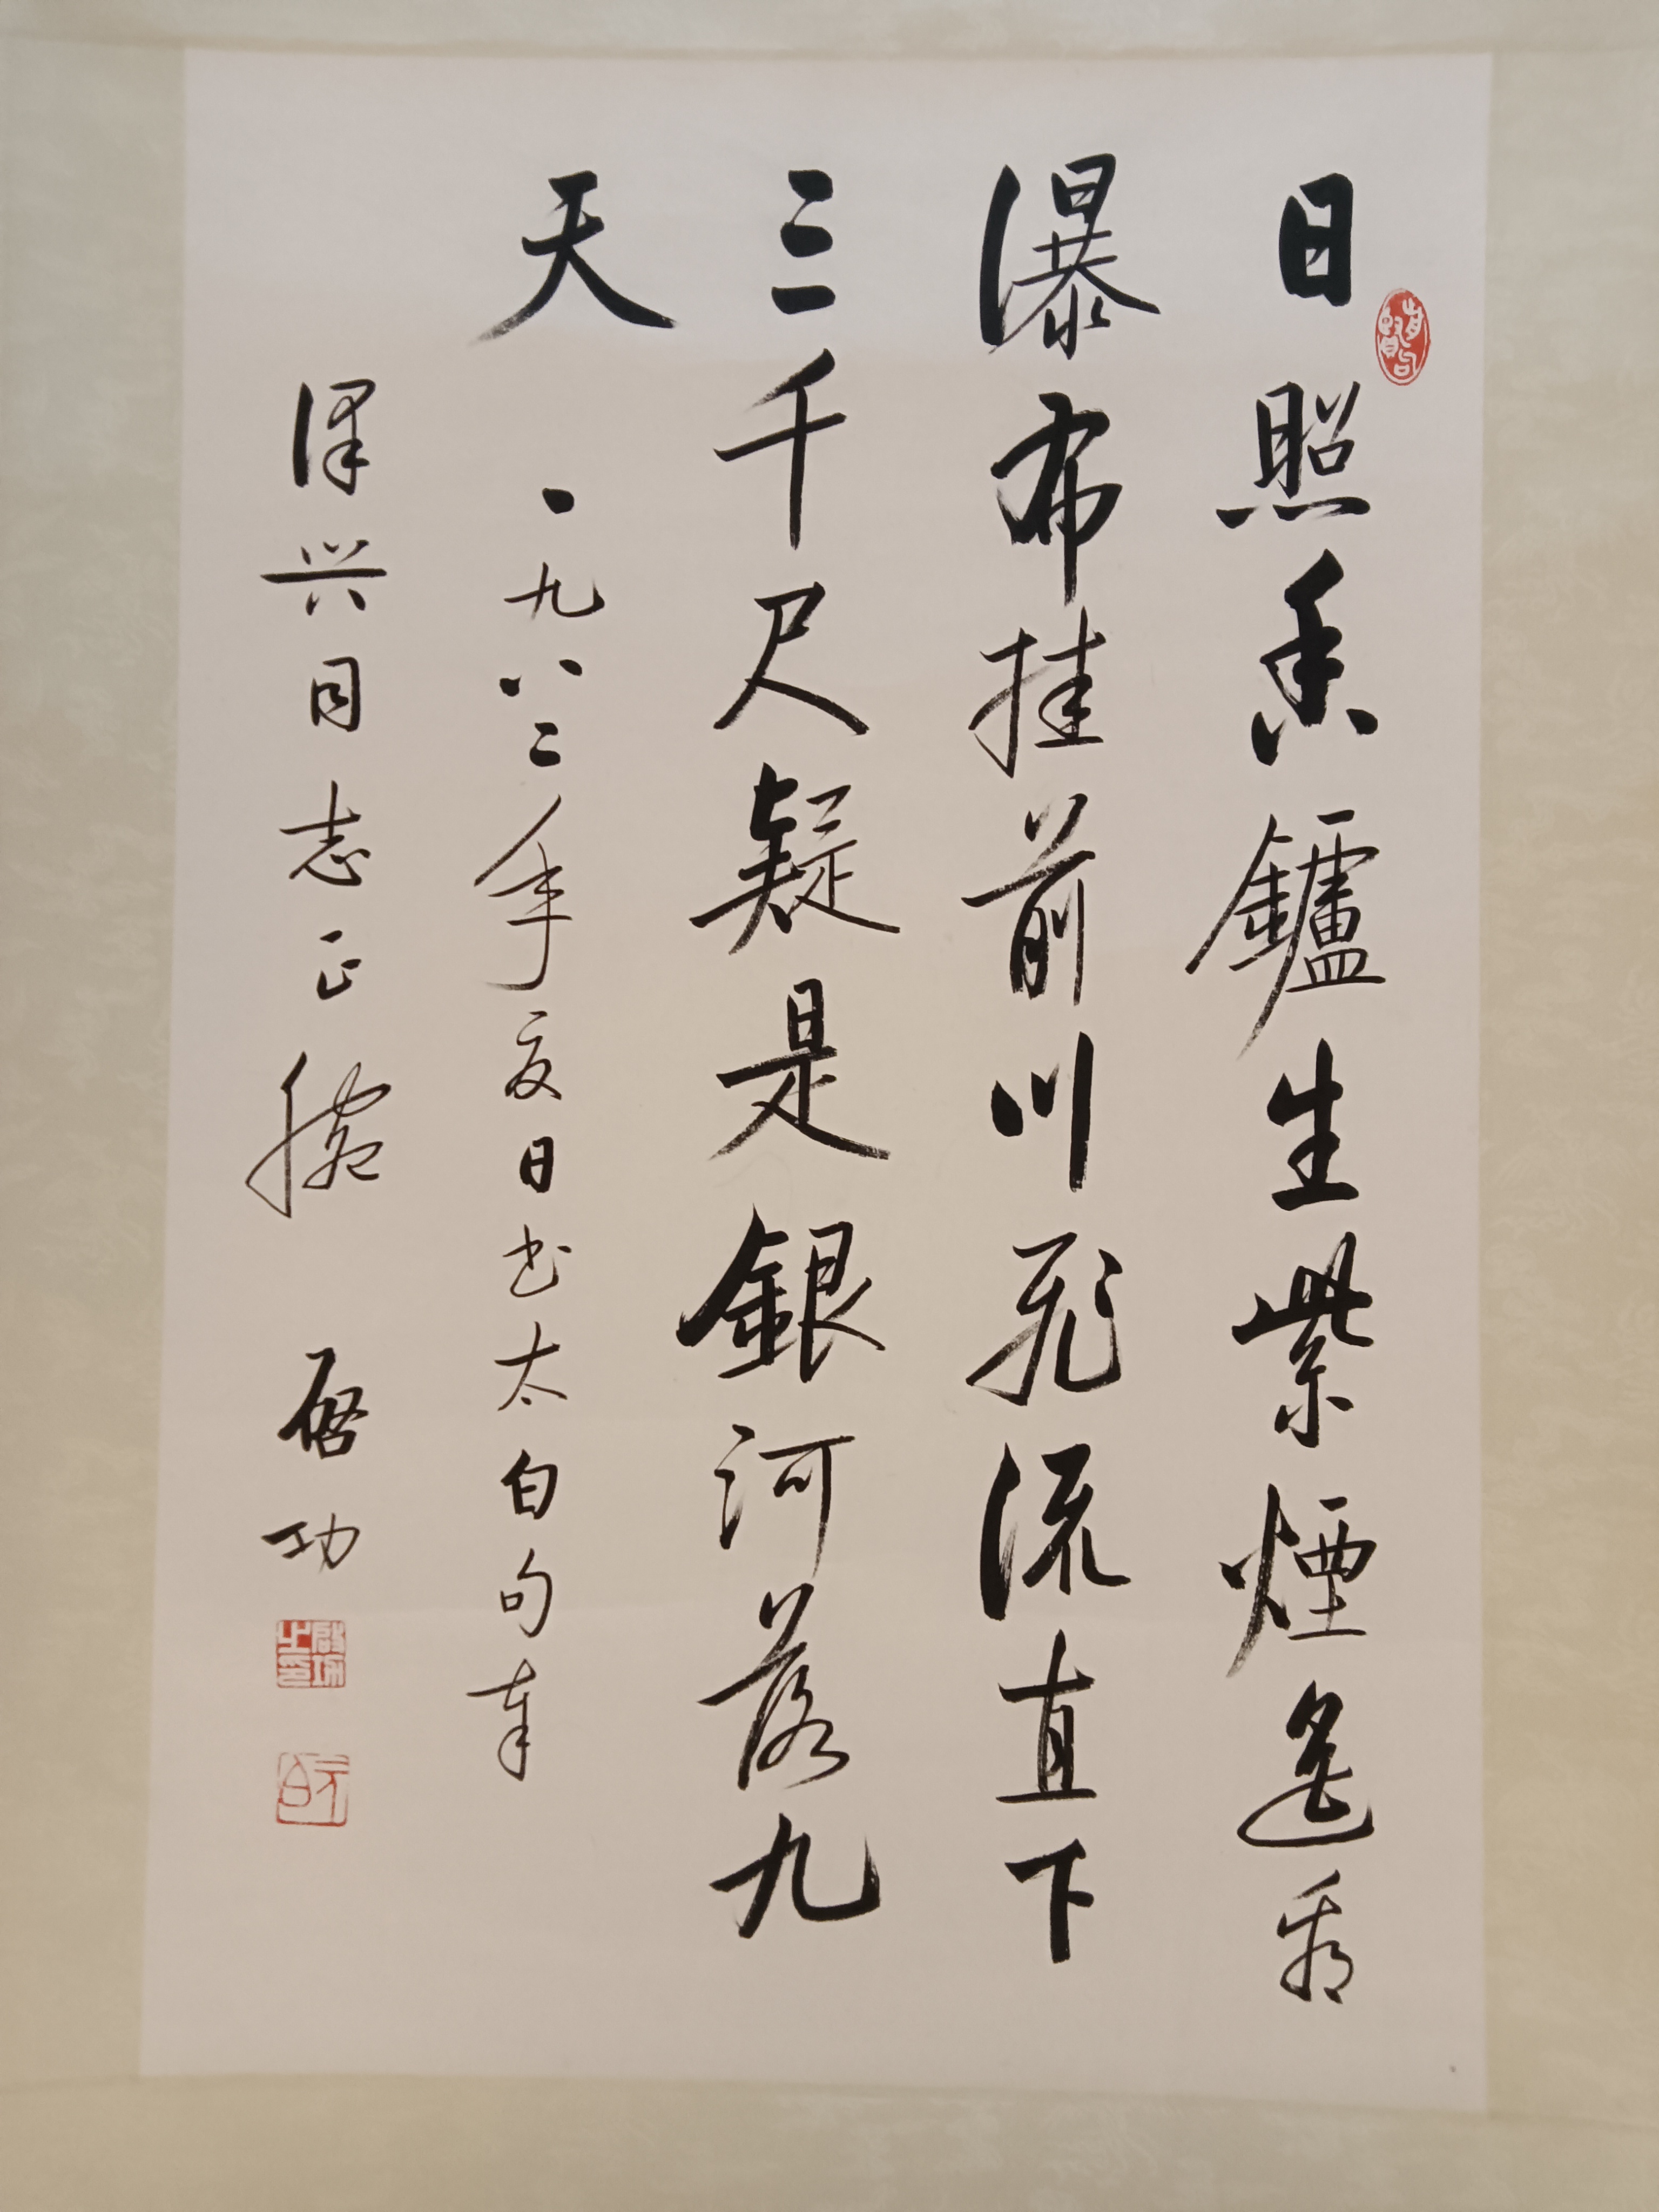 日照香鑪生紫煙遙看
瀑布挂前川飛流直下
三千尺疑是銀河落九
天
一九八二年夏日书太白句奉
泽兴同志正腕 启功
启功之印
元白